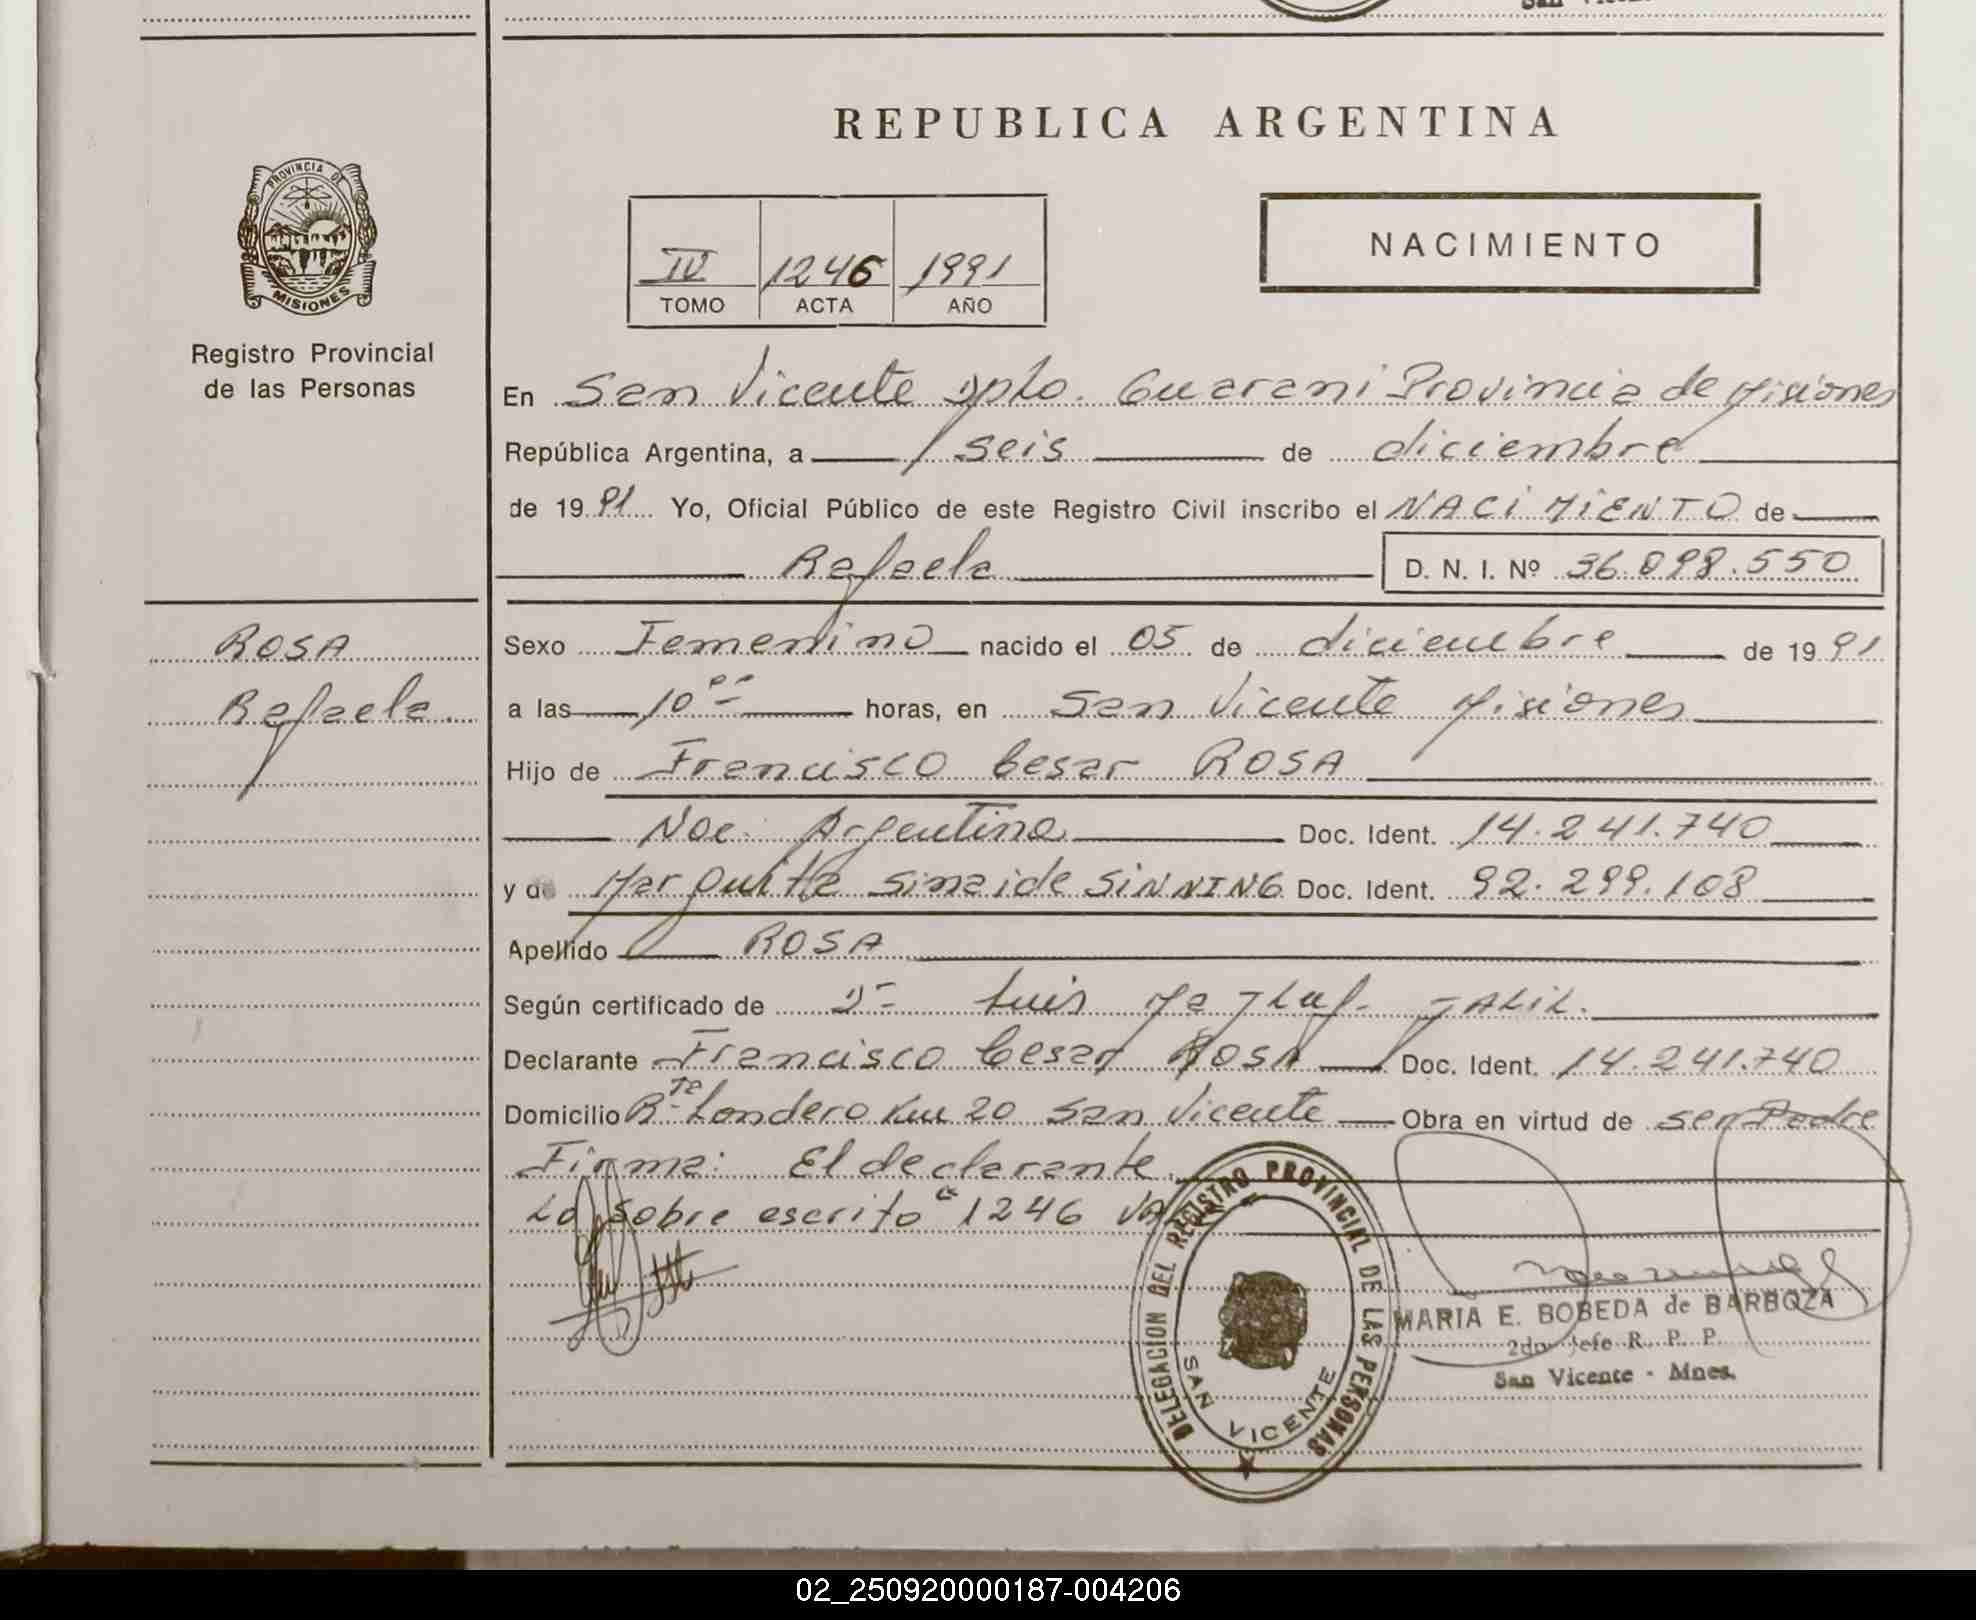 San Vicente
REPUBLICA ARGENTINA
PROVINCIA DE
MISIONES
Registro Provincial
de las Personas
NACIMIENTO
IV 1246 1991
TOMO ACTA AÑO
En San Vicente Dpto. Guarani Provincia de Misiones
República Argentina, a seis de diciembre
de 1991 Yo, Oficial Público de este Registro Civil inscribo el NACiMiENTO de
Rafaela D. N. I. Nº 36.098.550
ROSA
Rafaela
Sexo Femenino nacido el 05 de diciembre de 1991
a las 10 horas, en San Vicente Misiones
Hijo de Francisco Cesar ROSA
Nac. Argentina Doc. Ident. 14.241.740
y de Marguita Sinaide SiNNING Doc. Ident. 92.299.108
Apellido ROSA
Según certificado de Dr Luis JALIL.
Declarante Francisco Cesar ROSA Doc. Ident. 14.241.740
Domicilio Rta Londero Km 20 San Vicente Obra en virtud de ser Padre
Firma: El declarante.
Lo sobre escrito "1246 VALE
DELEGACION DEL REGISTRO PROVINCIAL DE LAS PERSONAS
SAN VICENTE
MARIA E. BOBEDA de BARBOZA
2do Jefe R. P. P.
San Vicente - Mnes.
02_250920000187-004206